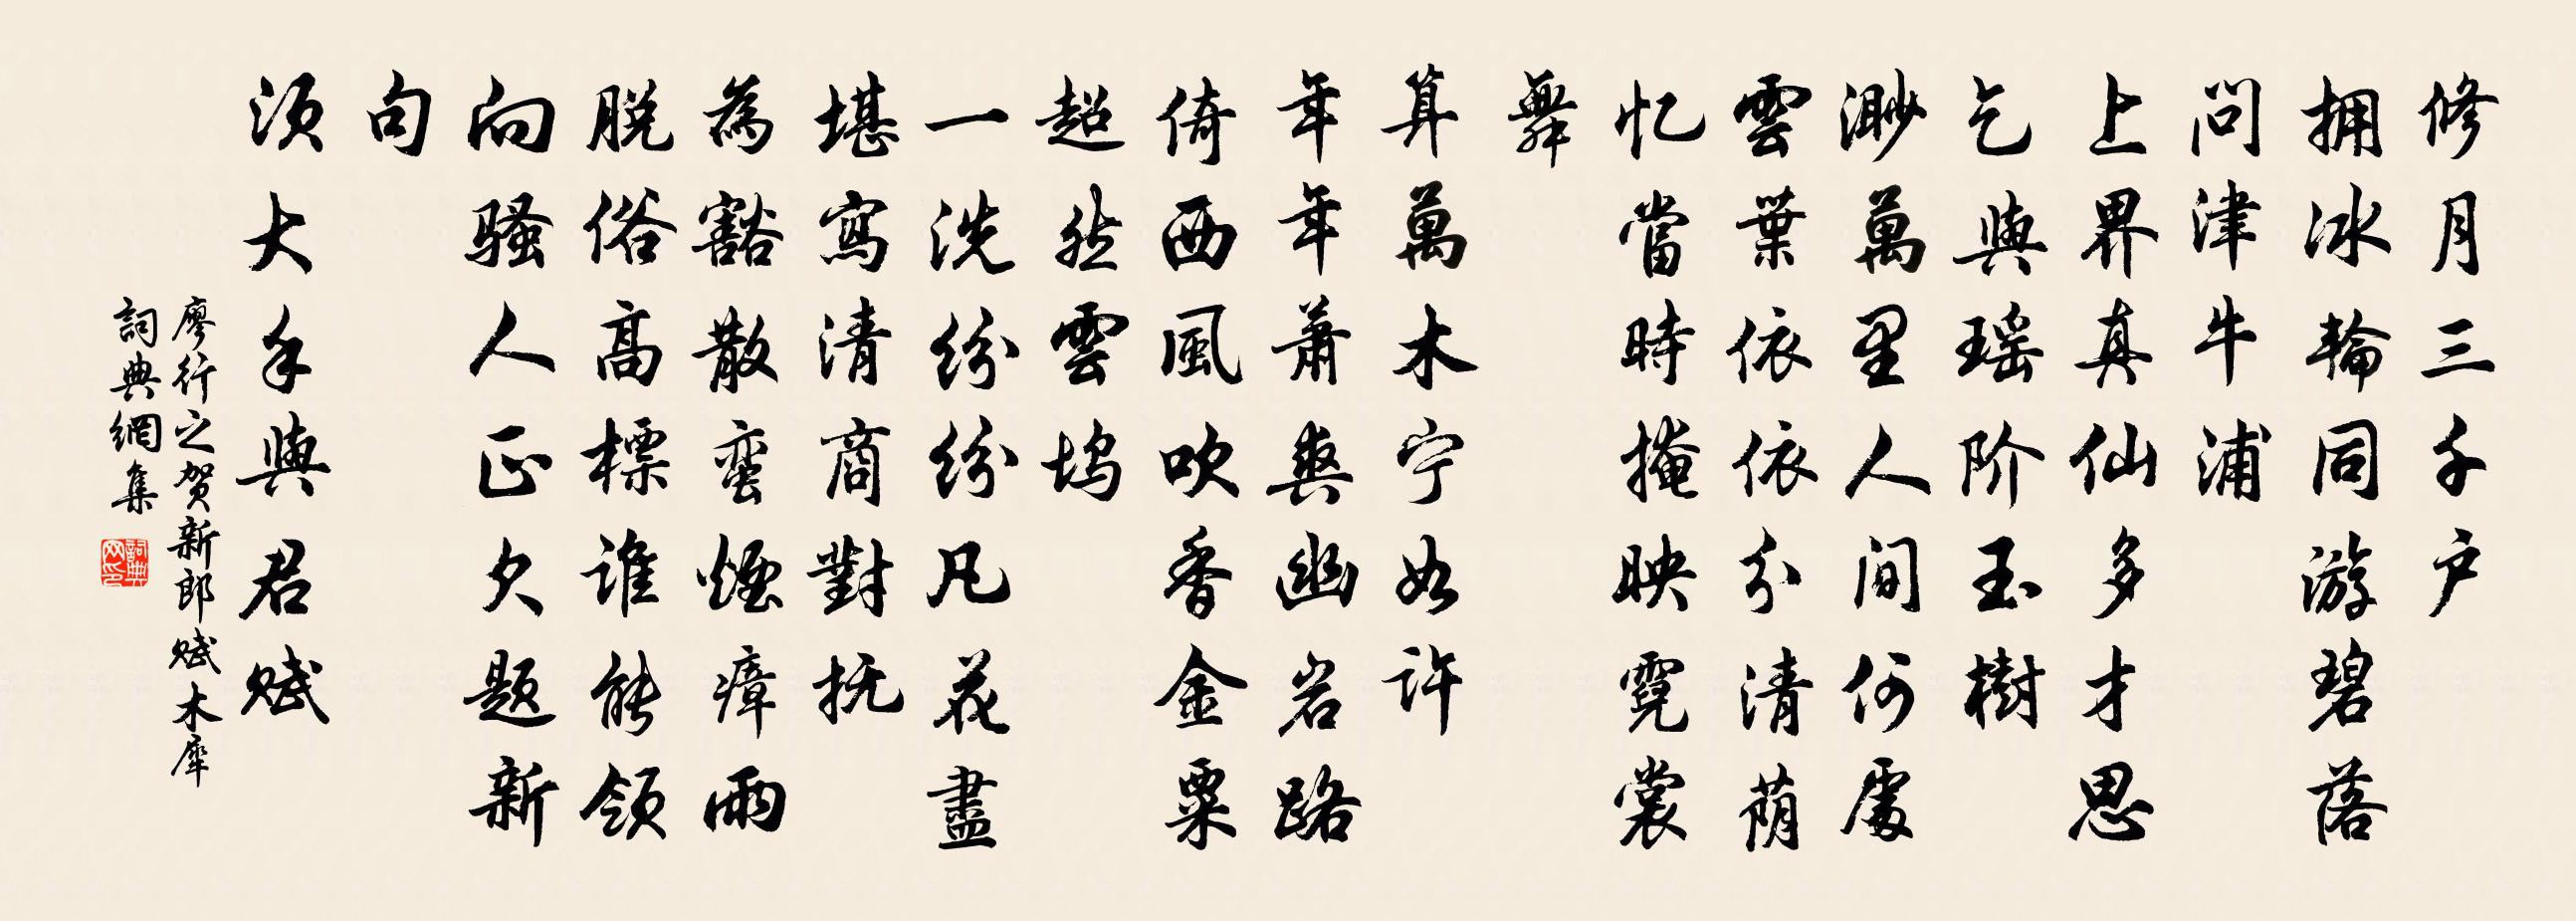 修月三千户
拥冰輪同游碧落
問津牛浦
上界真仙多才思
乞與瑶阶玉樹
渺萬里人间何處
雲葉依依分清荫
忆當時掩映霓裳
舞
算萬木宁如许
年年萧爽幽岩路
倚西風吹香金粟
超然雲坞
一洗纷纷凡花盡
堪寫清商對抚
為豁散蛮煙瘴雨
脱俗高標谁能领
向骚人正欠题新
句
须大手與君赋
廖行之贺新郎赋木犀
詞典網集
詞典网印